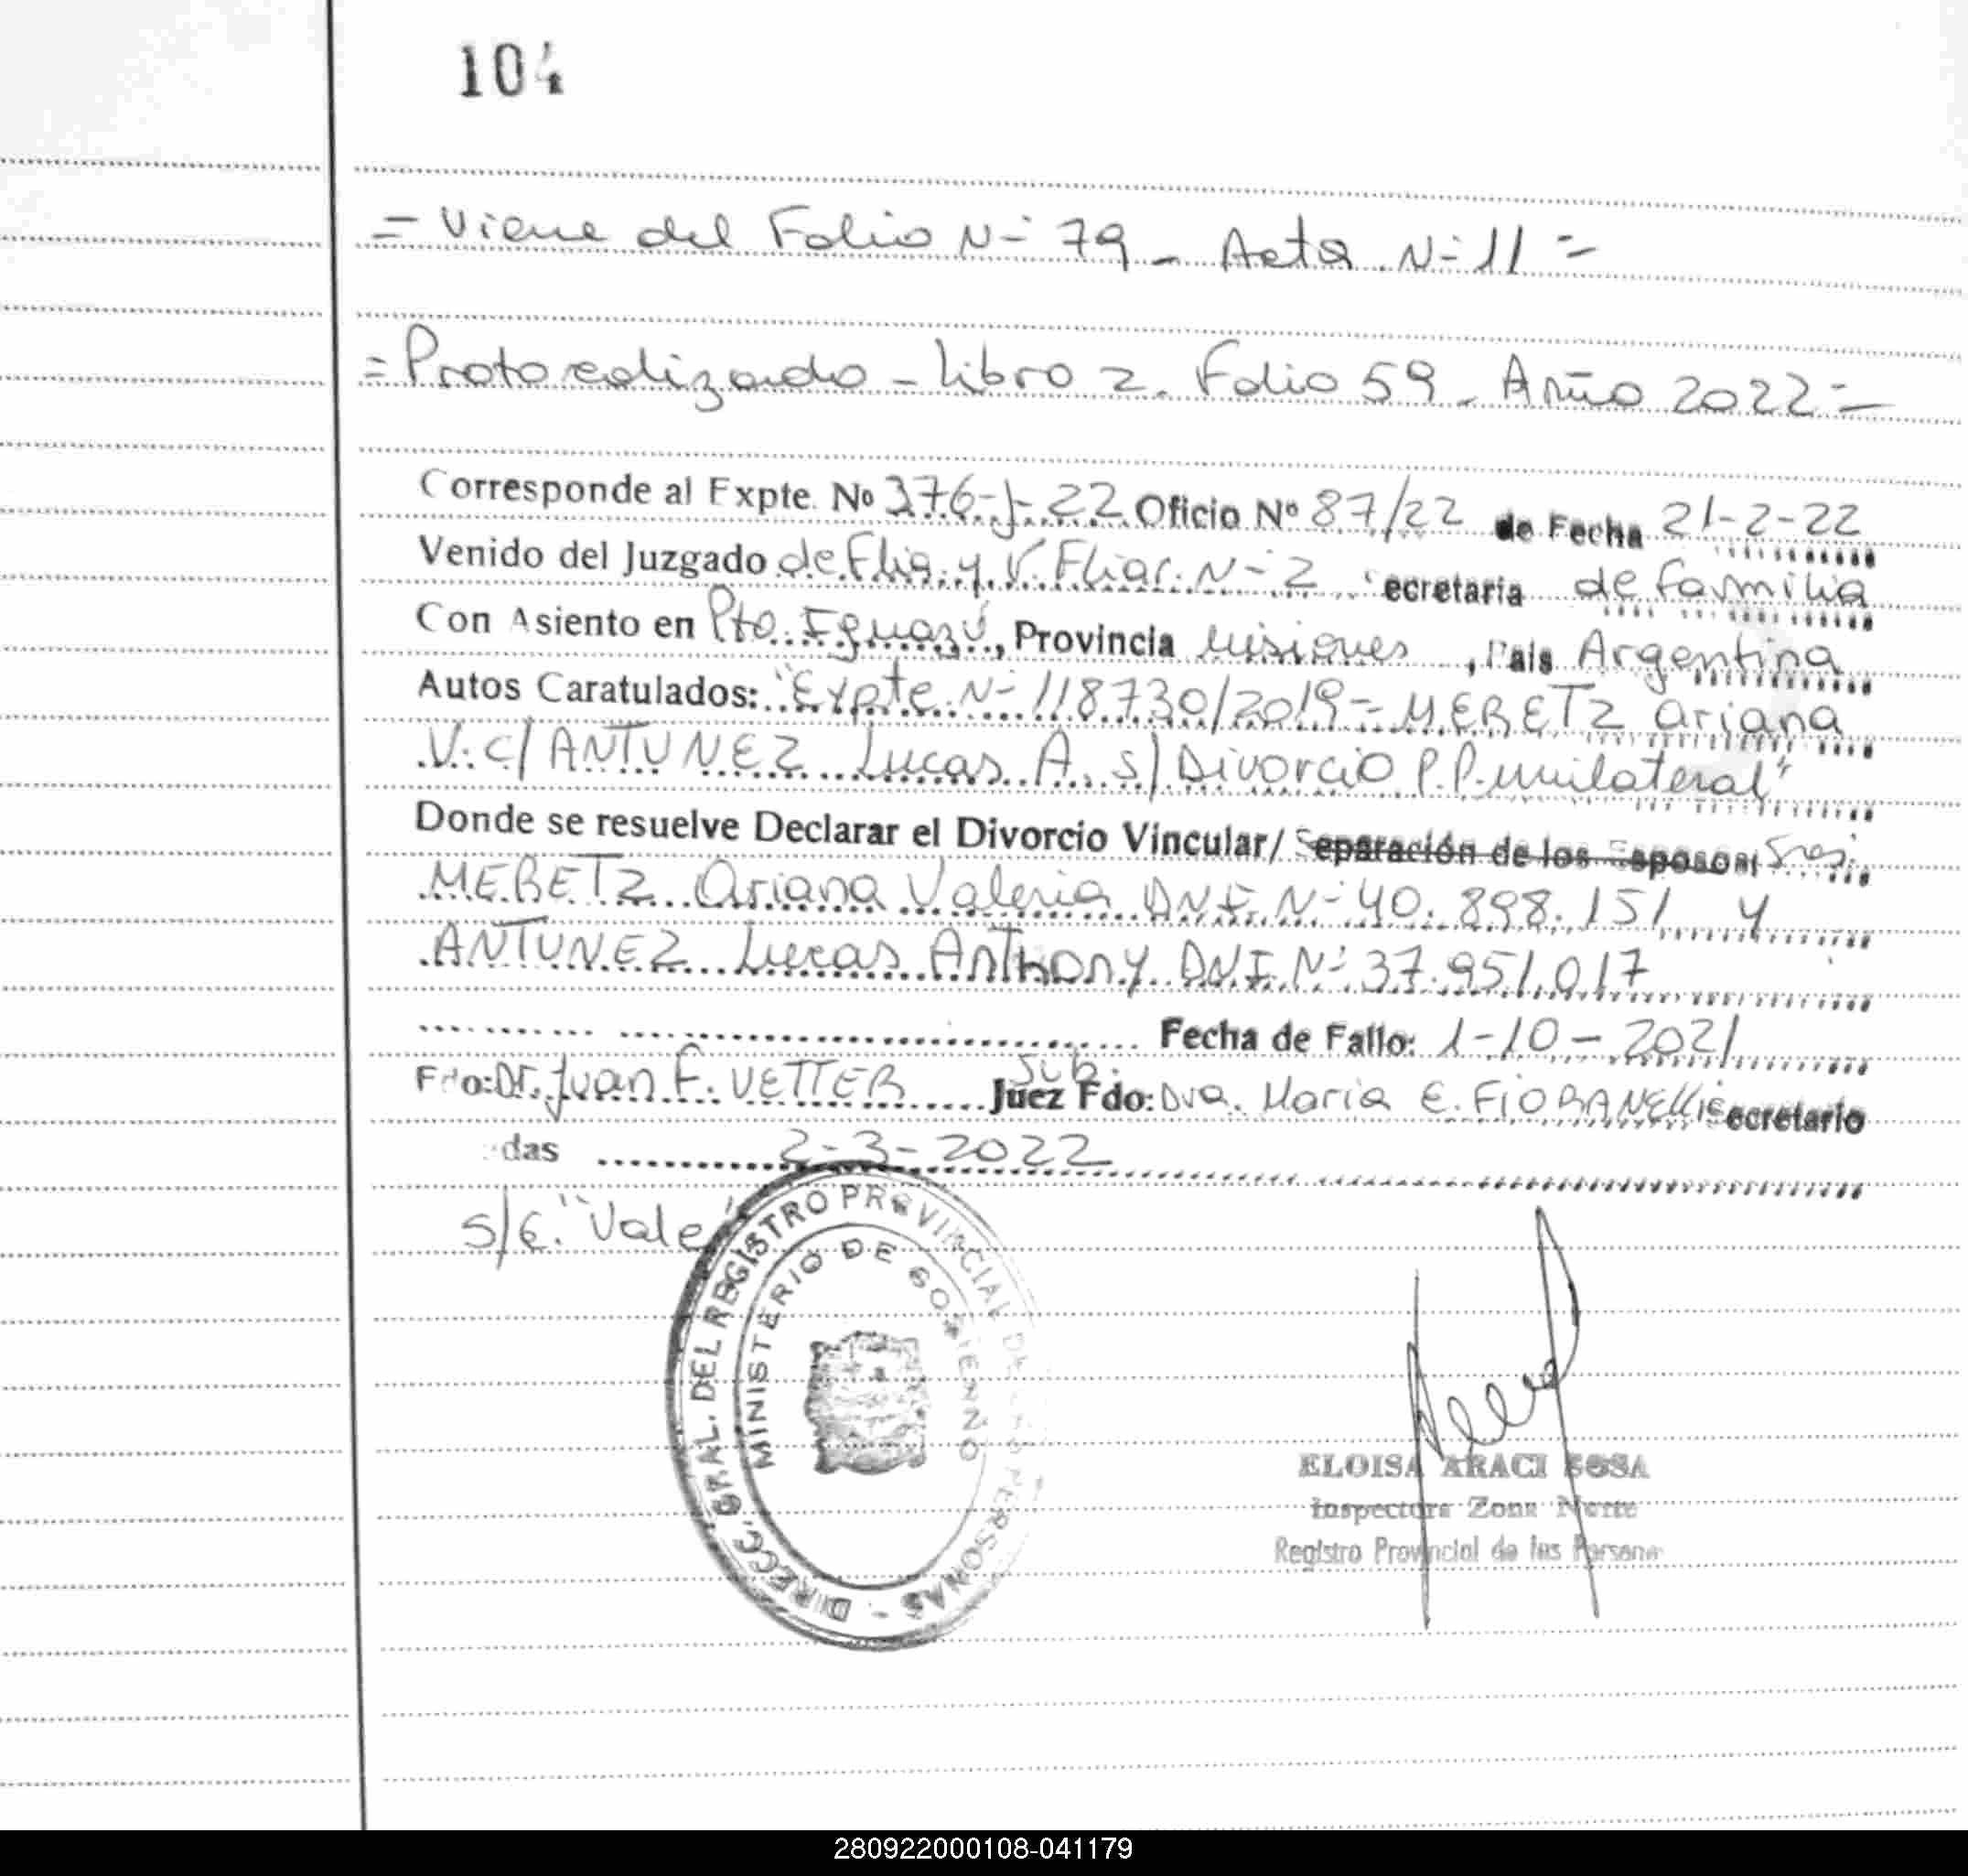 104
= Viene del Folio Nº 79 - Acta Nº 11 =
= Protocolizado - Libro 2. Folio 59 - Año 2022 =
Corresponde al Expte. Nº 376-J-22 Oficio Nº 87/22 de Fecha 21-2-22
Venido del Juzgado de Flia. y V. Fliar. Nº 2 Secretaria de familia
Con Asiento en Pto. Iguazú, Provincia Misiones, Pais Argentina
Autos Caratulados: "Expte Nº 118730/2019 = MERETZ Ariana
V. C/ ANTUNEZ Lucas A. s/ Divorcio P.P. unilateral"
Donde se resuelve Declarar el Divorcio Vincular/ Separación de los Esposos: Sres.
MERETZ Ariana Valeria DNI. Nº 40.898.151 y
ANTUNEZ Lucas Anthony DNI. Nº 37.951.017
Fecha de Fallo: 1-10-2021
Fdo: Dr. Juan F. VETTER Juez Fdo: Dra. Maria E. FIORANELLI Secretario
Sub.
das 2-3-2022
S/E. "Vale
DIRECC. GRAL. DEL REGISTRO PROVINCIAL DE LAS PERSONAS -
MINISTERIO DE GOBIERNO
ELOISA ARACI SOSA
Inspectora Zona Norte
Registro Provincial de las Personas
280922000108-041179